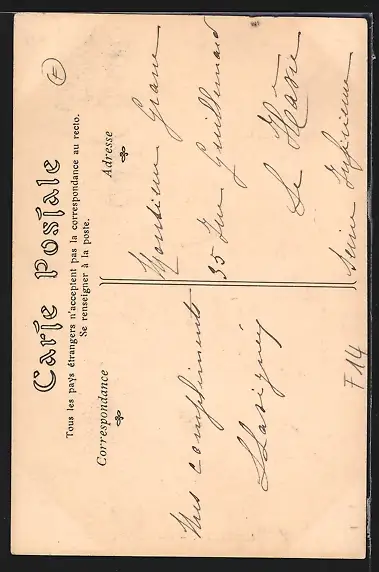 Carte Postale
Tous les pays étrangers n'acceptent pas la correspondance au recto.
Se renseigner à la poste.
Correspondance
Adresse
Mes compliments
Monsieur
35 Rue Guillemard
Le Havre
Seine Inférieure
F 14